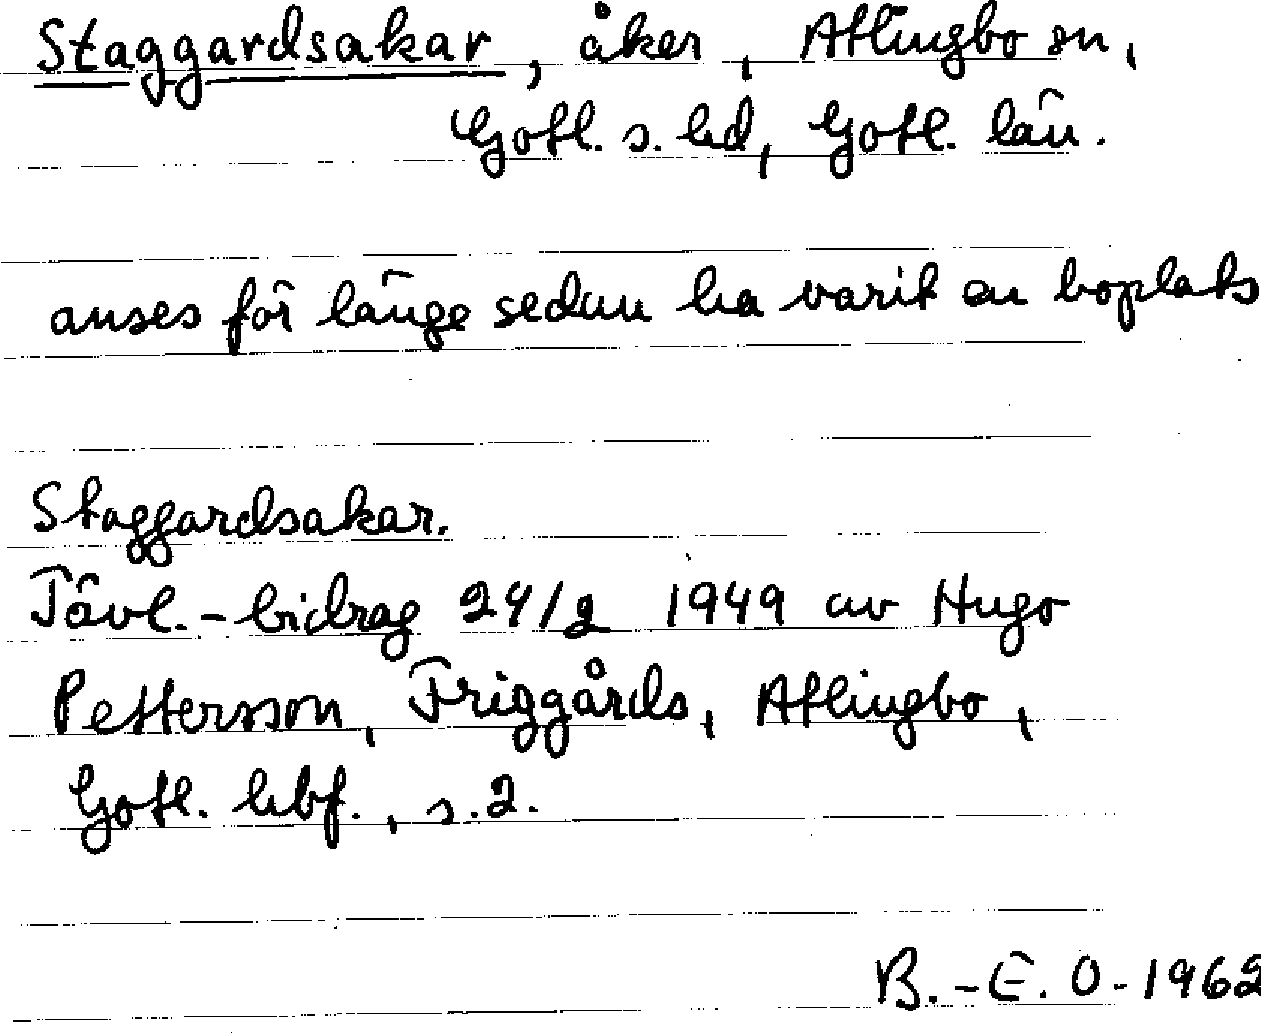 Staggardsakar, åker, Atlingbo sn,
Gotl. s. hd, Gotl. län.
anses för länge sedan ha varit en boplats
Staggardsakar.
Tävl.-bidrag 24/2 1949 av Hugo
Pettersson, Friggårds, Atlingbo,
Gotl. hbf., s.2.
B.-E. O-1962